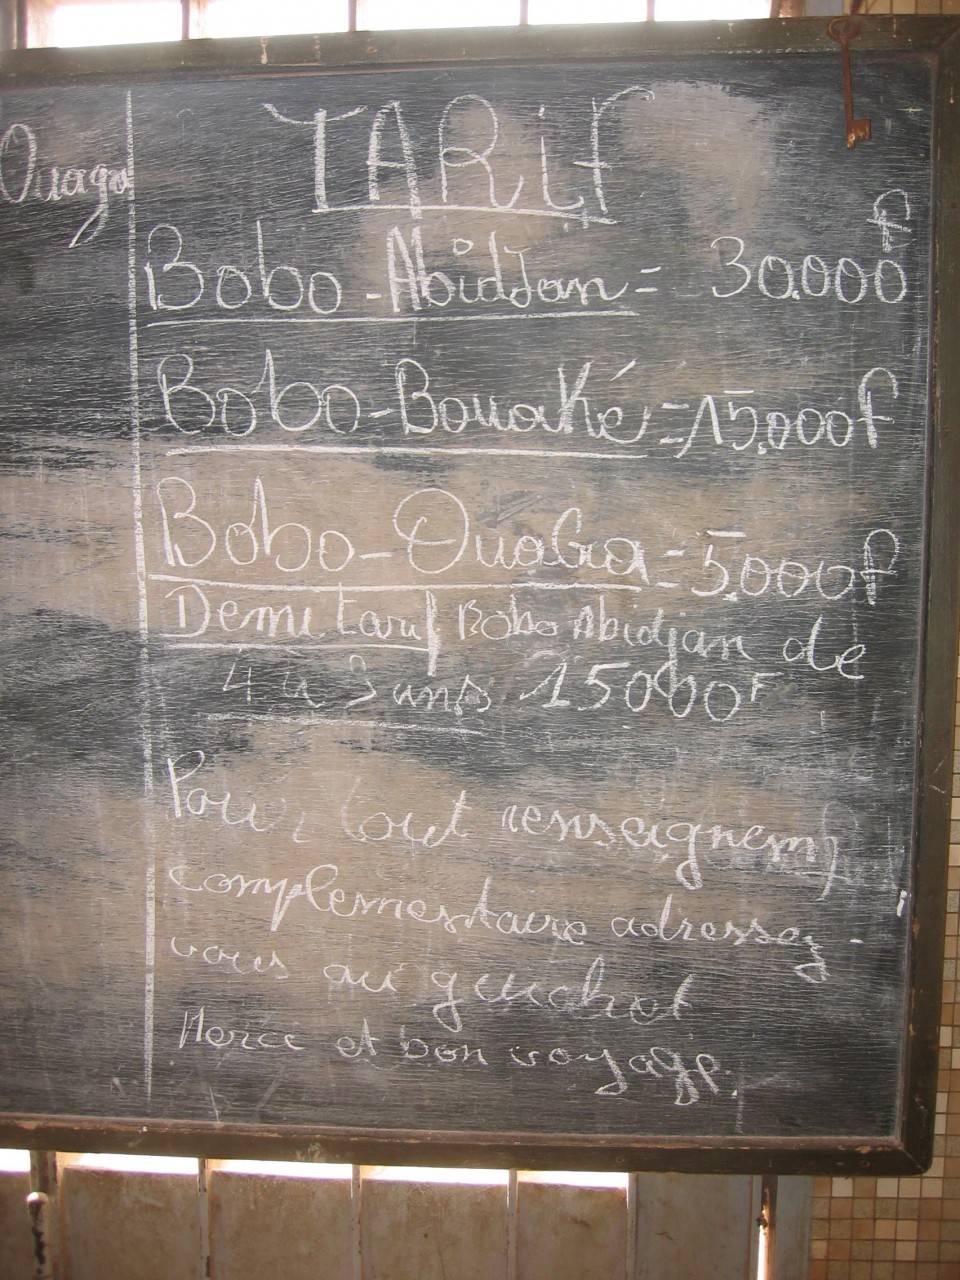 Ouaga
TARif
Bobo-Abidjan = 30.000f
Bobo-Bouaké = 15.000f
Bobo-Ouaga = 5.000f
Demi tarif Bobo Abidjan de
4 à 9 ans 15000F
Pour tout renseignem
complementaire adressez-
vous au guichet
Merci et bon voyage.